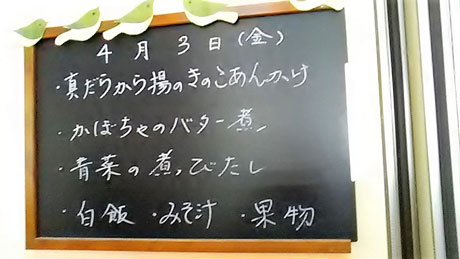 4月3日(金)
・真だらから揚のきのこあんかけ
・かぼちゃのバター煮
・青菜の煮びたし
・白飯 ・みそ汁 ・果物